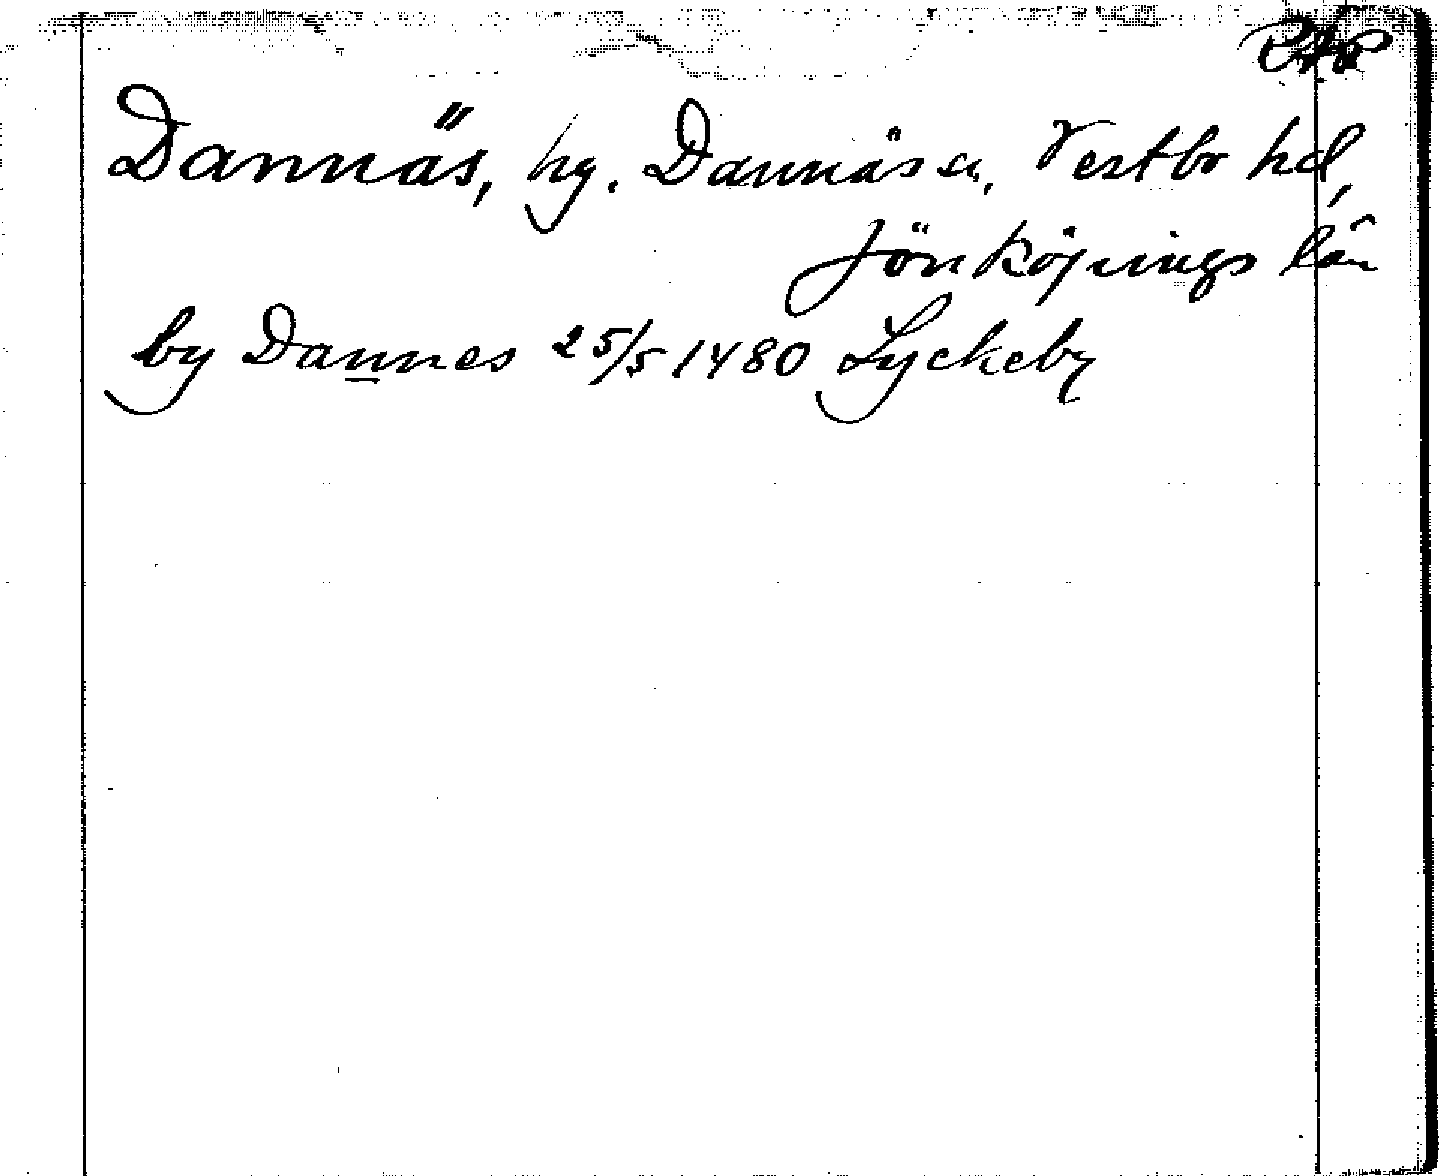 RAp
Dannäs, hg. Dannäs sn, Vestbo hd,
Jönköpings län
by Dannes 25/5 1480 Lyckeby